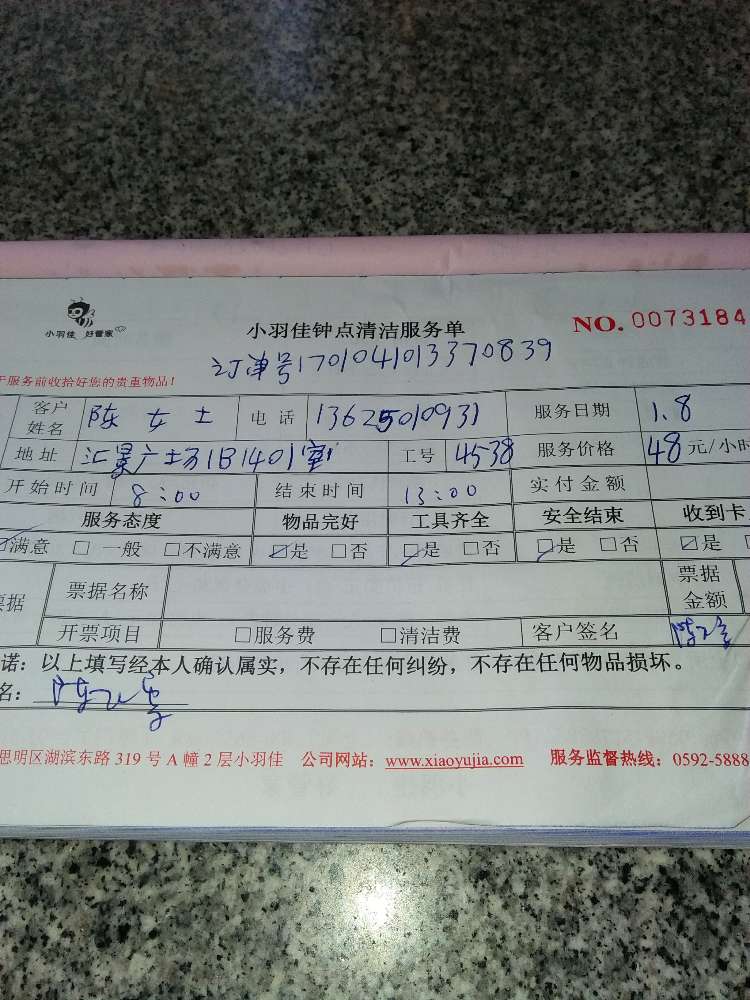 小羽佳 好管家
小羽佳钟点清洁服务单
NO. 0073184
订单号170104013370839
于服务前收拾好您的贵重物品!
客户姓名 陈女士 电话 13625010931 服务日期 1.8
地址 汇景广场1B1401室 工号 4538 服务价格 48元/小时
开始时间 8:00 结束时间 13:00 实付金额
服务态度 物品完好 工具齐全 安全结束 收到卡
☑满意 □一般 □不满意 ☑是 □否 ☑是 □否 ☑是 □否 ☑是
票据 票据名称 票据金额
开票项目 □服务费 □清洁费 客户签名
诺:以上填写经本人确认属实,不存在任何纠纷,不存在任何物品损坏。
名:
思明区湖滨东路 319 号 A 幢 2 层小羽佳 公司网站:www.xiaoyujia.com 服务监督热线:0592-5888